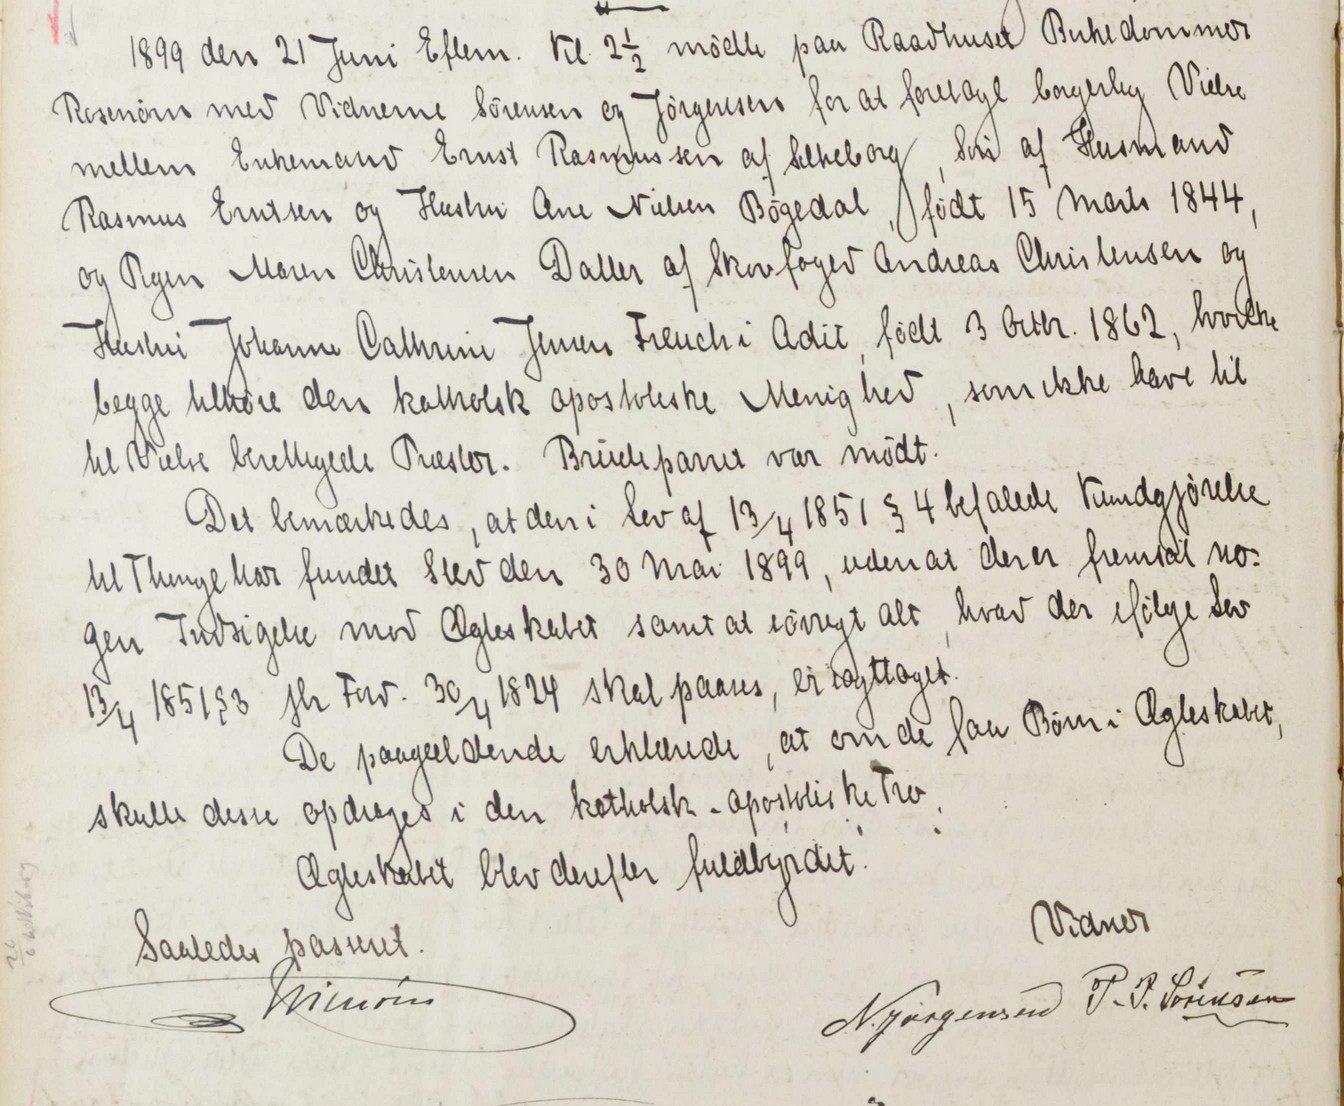 1899 den 21 Juni Efterm. Kl. 2½ mödte paa Raadhuset Birkedommer
Rosenørn med Vidnerne Sörensen og Jörgensen for at foretage borgerlig Vielse
mellem Enkemand Ernst Rasmussen af Silkeborg, Sön af Husmand
Rasmus Erntsen og Hustru Ane Nielsen Bögedal, födt 15 Marts 1844,
og Pigen Maren Christensen Datter af Skovfoged Andreas Christensen og
Hustru Johanne Cathrine Jensen French i Adit, födt 3 Octbr. 1862, hvilke
begge tilhöre den katholsk apostoliske Menighed, som ikke have til
til Vielse berettigede Præster. Brudeparret var mödt.
Det bemærkedes, at den i Lov af 13/4 1851 § 4 befalede Kundgjörelse
til Thinge har fundet Sted den 30 Mai 1899, uden at der er fremsat no-
gen Indsigelse mod Ægteskabet samt at iövrigt alt, hvad der ifölge Lov
13/4 1851 § 3 jfr Ford. 30/4 1824 skal paases, er iagttaget.
De paagjældende erklærede, at om de faa Börn i Ægteskabet,
skulle disse opdrages i den katholsk-apostoliske Tro.
Ægteskabet blev derefter fuldbyrdet.
Saaledes passeret.
Vidner
N. Jörgensen P. P. Sörensen